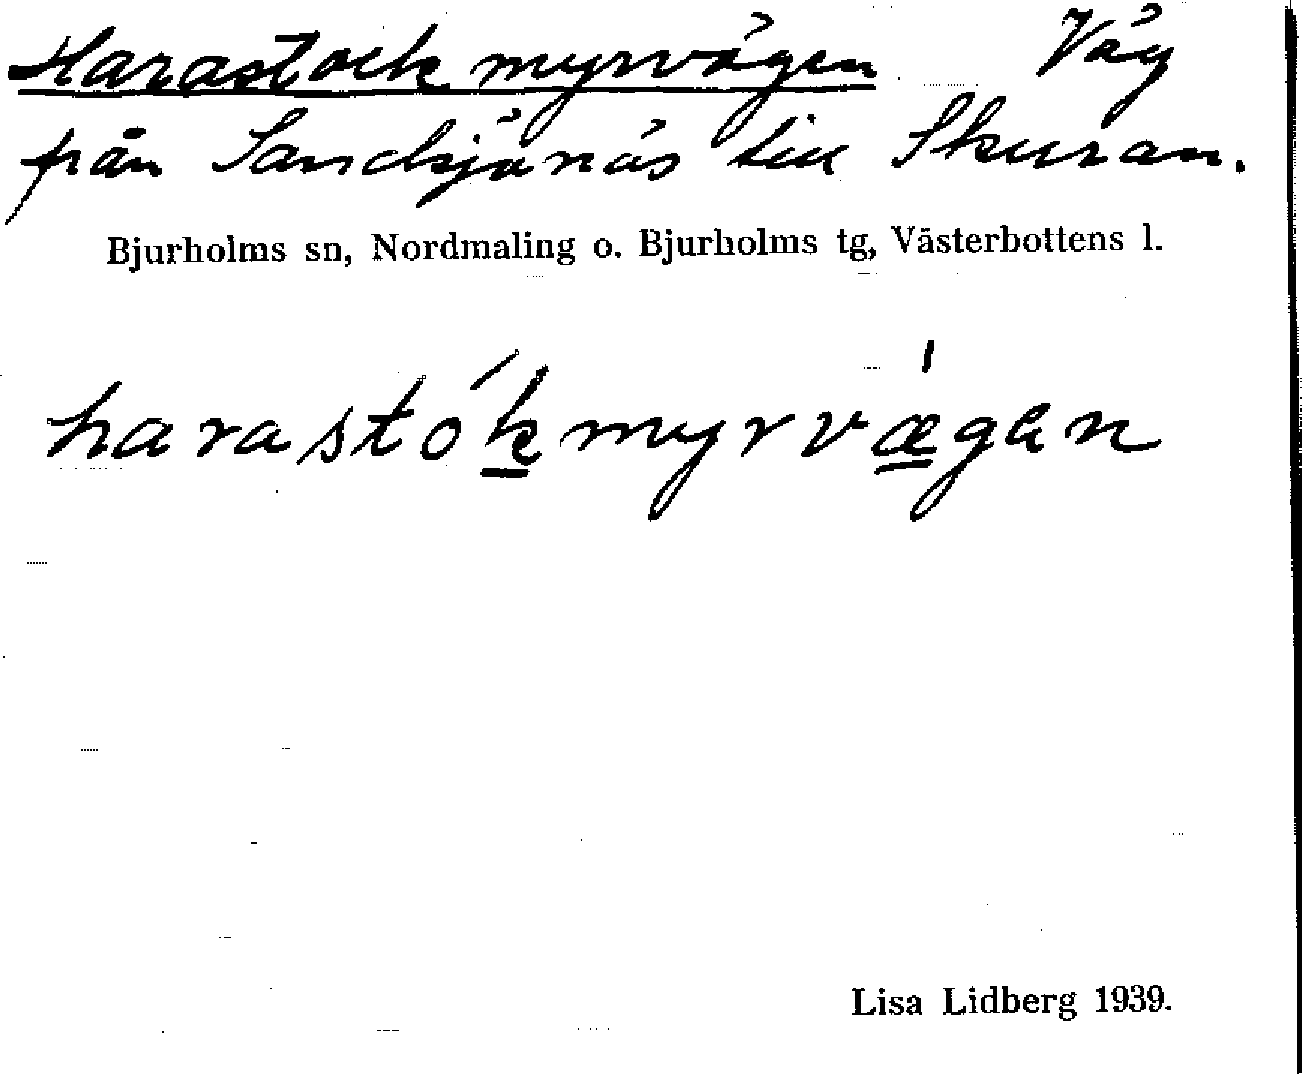 Harastockmyrvägen Väg
från Sandsjönäs till Skuran.
Bjurholms sn, Nordmaling o. Bjurholms tg, Västerbottens l.
harastók̲myrvæ̲̍gen
Lisa Lidberg 1939.